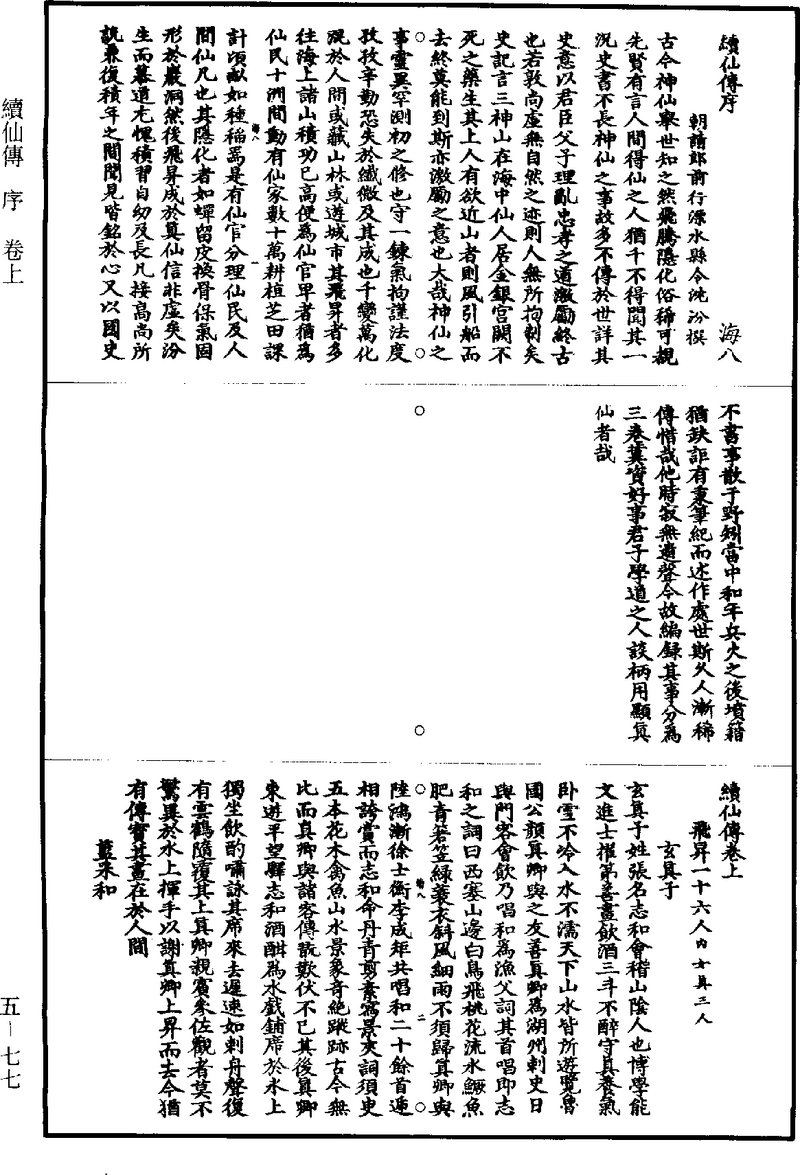 續仙傳序
海八
朝請郎前行溧水縣令沈汾撰
古今神仙舉世知之然飛騰隱化俗稀可覩
先賢有言人間得仙之人猶千不得聞其一
況史書不長神仙之事故多不傳於世詳其
史意以君臣父子理亂忠孝之道激勵終古
也若敦尚虛無自然之迹則人無所拘制矣
史記言三神山在海中仙人居金銀宮闕不
死之藥生其上人有欲近山者則風引船而
去終莫能到斯亦激勵之意也大哉神仙之
事靈異罕測初之修也守一鍊氣拘謹法度
孜孜辛勤恐失於纖微及其成也千變萬化
混於人間或藏山林或遊城市其飛昇者多
往海上諸山積功已高便為仙官卑者猶為
仙民十洲間動有仙家數十萬耕植芝田課
計頃畝如種稻焉是有仙官分理仙民及人
間仙凡也其隱化者如蟬留皮換骨保氣固
形於巖洞然後飛昇成於真仙信非虛矣汾
生而慕道尤愧積習自幼及長凡接高尚所
說兼復積年之間聞見皆銘於心又以國史
不書事散于野矧當中和年兵火之後墳籍
猶缺詎有秉筆紀而述作處世斯久人漸稀
傳惜哉他時寂無遺聲今故編錄其事分為
三卷冀資好事君子學道之人談柄用顯真
仙者哉
續仙傳卷上
飛昇一十六人內女真三人
玄真子
玄真子姓張名志和會稽山陰人也博學能
文進士擢第善畫飲酒三斗不醉守真養氣
臥雪不冷入水不濡天下山水皆所遊覽魯
國公顏真卿與之友善真卿為湖州刺史日
與門客會飲乃唱和為漁父詞其首唱即志
和之詞曰西塞山邊白鳥飛桃花流水鱖魚
肥青箬笠綠蓑衣斜風細雨不須歸真卿與
陸鴻漸徐士衡李成矩共唱和二十餘首遞
相誇賞而志和命丹青剪素寫景夾詞須臾
五本花木禽魚山水景象奇絕蹤跡古今無
比而真卿與諸客傳翫歎伏不已其後真卿
東遊平望驛志和酒酣為水戲鋪席於水上
獨坐飲酌嘯詠其席來去遲速如刺舟聲復
有雲鶴隨覆其上真卿親賓參佐觀者莫不
驚異於水上揮手以謝真卿上昇而去今猶
有傳寶其畫在於人間
藍采和
續仙傳 序 卷上
五－七七